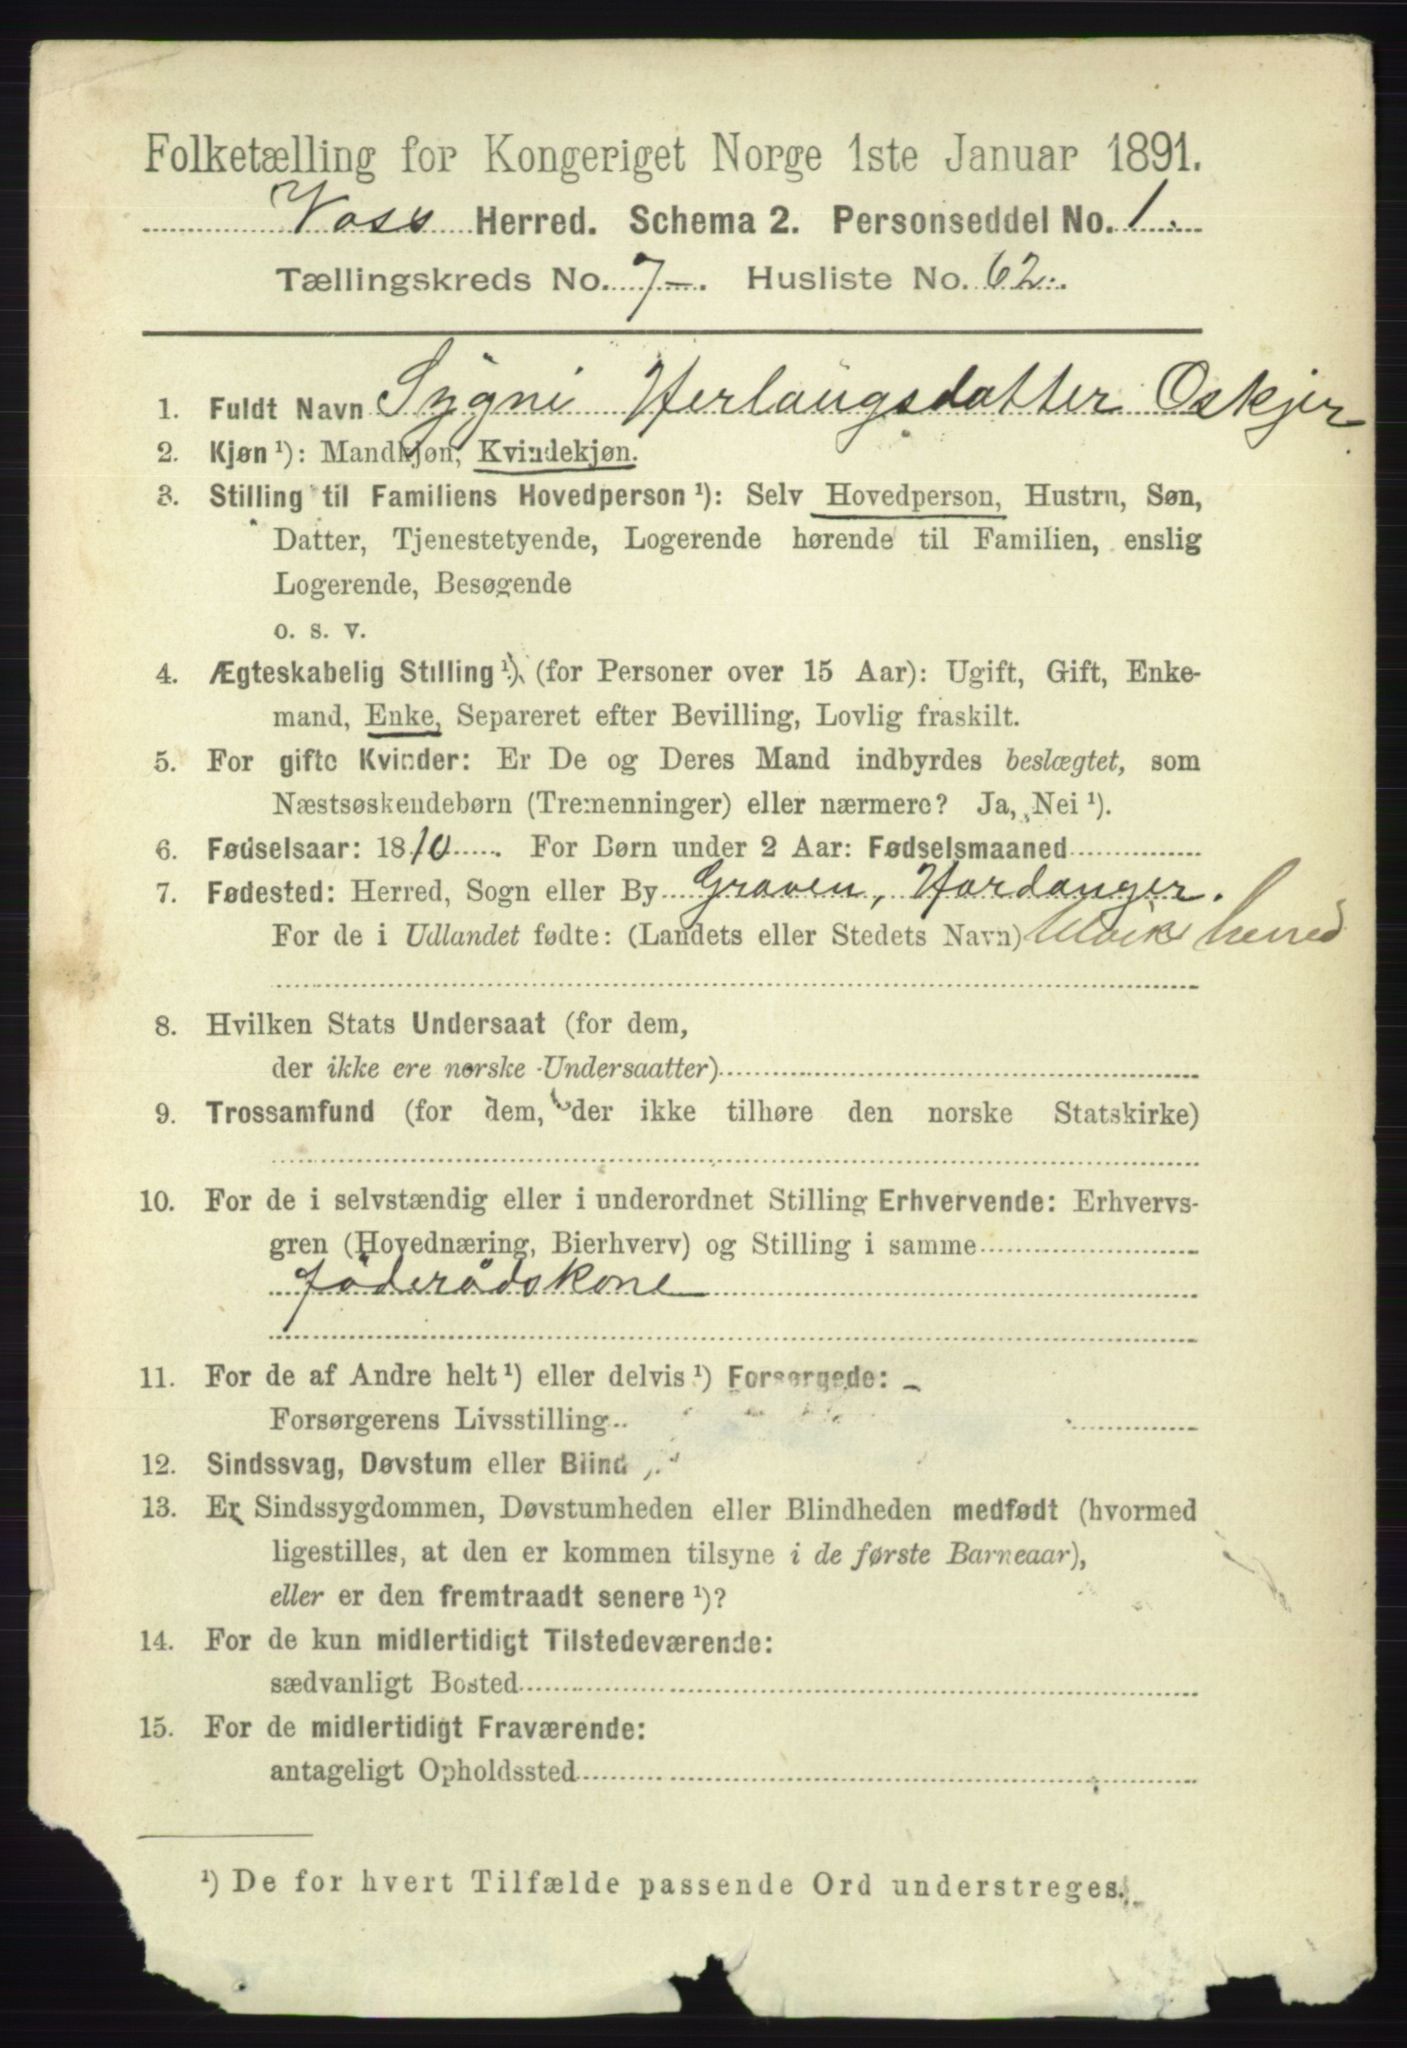 Folketælling for Kongeriget Norge 1ste Januar 1891.
Voss Herred. Schema 2. Personseddel No. 1.
Tællingskreds No. 7-. Husliste No. 62.
1. Fuldt Navn Sygni Herlaugsdatter Oskjer
2. Kjøn ¹): Mandkjøn, Kvindekjøn.
3. Stilling til Familiens Hovedperson ¹): Selv Hovedperson, Hustru, Søn,
Datter, Tjenestetyende, Logerende hørende til Familien, enslig
Logerende, Besøgende
o. s. v.
4. Ægteskabelig Stilling ¹) (for Personer over 15 Aar): Ugift, Gift, Enke-
mand, Enke, Separeret efter Bevilling, Lovlig fraskilt.
5. For gifte Kvinder: Er De og Deres Mand indbyrdes beslægtet, som
Næstsøskendebørn (Tremenninger) eller nærmere? Ja, Nei ¹).
6. Fødselsaar: 1810. For Børn under 2 Aar: Fødselsmaaned
7. Fødested: Herred, Sogn eller By Graven, Hardanger.
For de i Udlandet fødte: (Landets eller Stedets Navn) Ulvik herred
8. Hvilken Stats Undersaat (for dem,
der ikke ere norske Undersaatter)
9. Trossamfund (for dem, der ikke tilhøre den norske Statskirke)
10. For de i selvstændig eller i underordnet Stilling Erhvervende: Erhvervs-
gren (Hovednæring, Bierhverv) og Stilling i samme
föderådskone
11. For de af Andre helt ¹) eller delvis ¹) Forsørgede:
Forsørgerens Livsstilling
12. Sindssvag, Døvstum eller Blind
13. Er Sindssygdommen, Døvstumheden eller Blindheden medfødt (hvormed
ligestilles, at den er kommen tilsyne i de første Barneaar),
eller er den fremtraadt senere ¹)?
14. For de kun midlertidigt Tilstedeværende:
sædvanligt Bosted
15. For de midlertidigt Fraværende:
antageligt Opholdssted
¹) De for hvert Tilfælde passende Ord understreges.